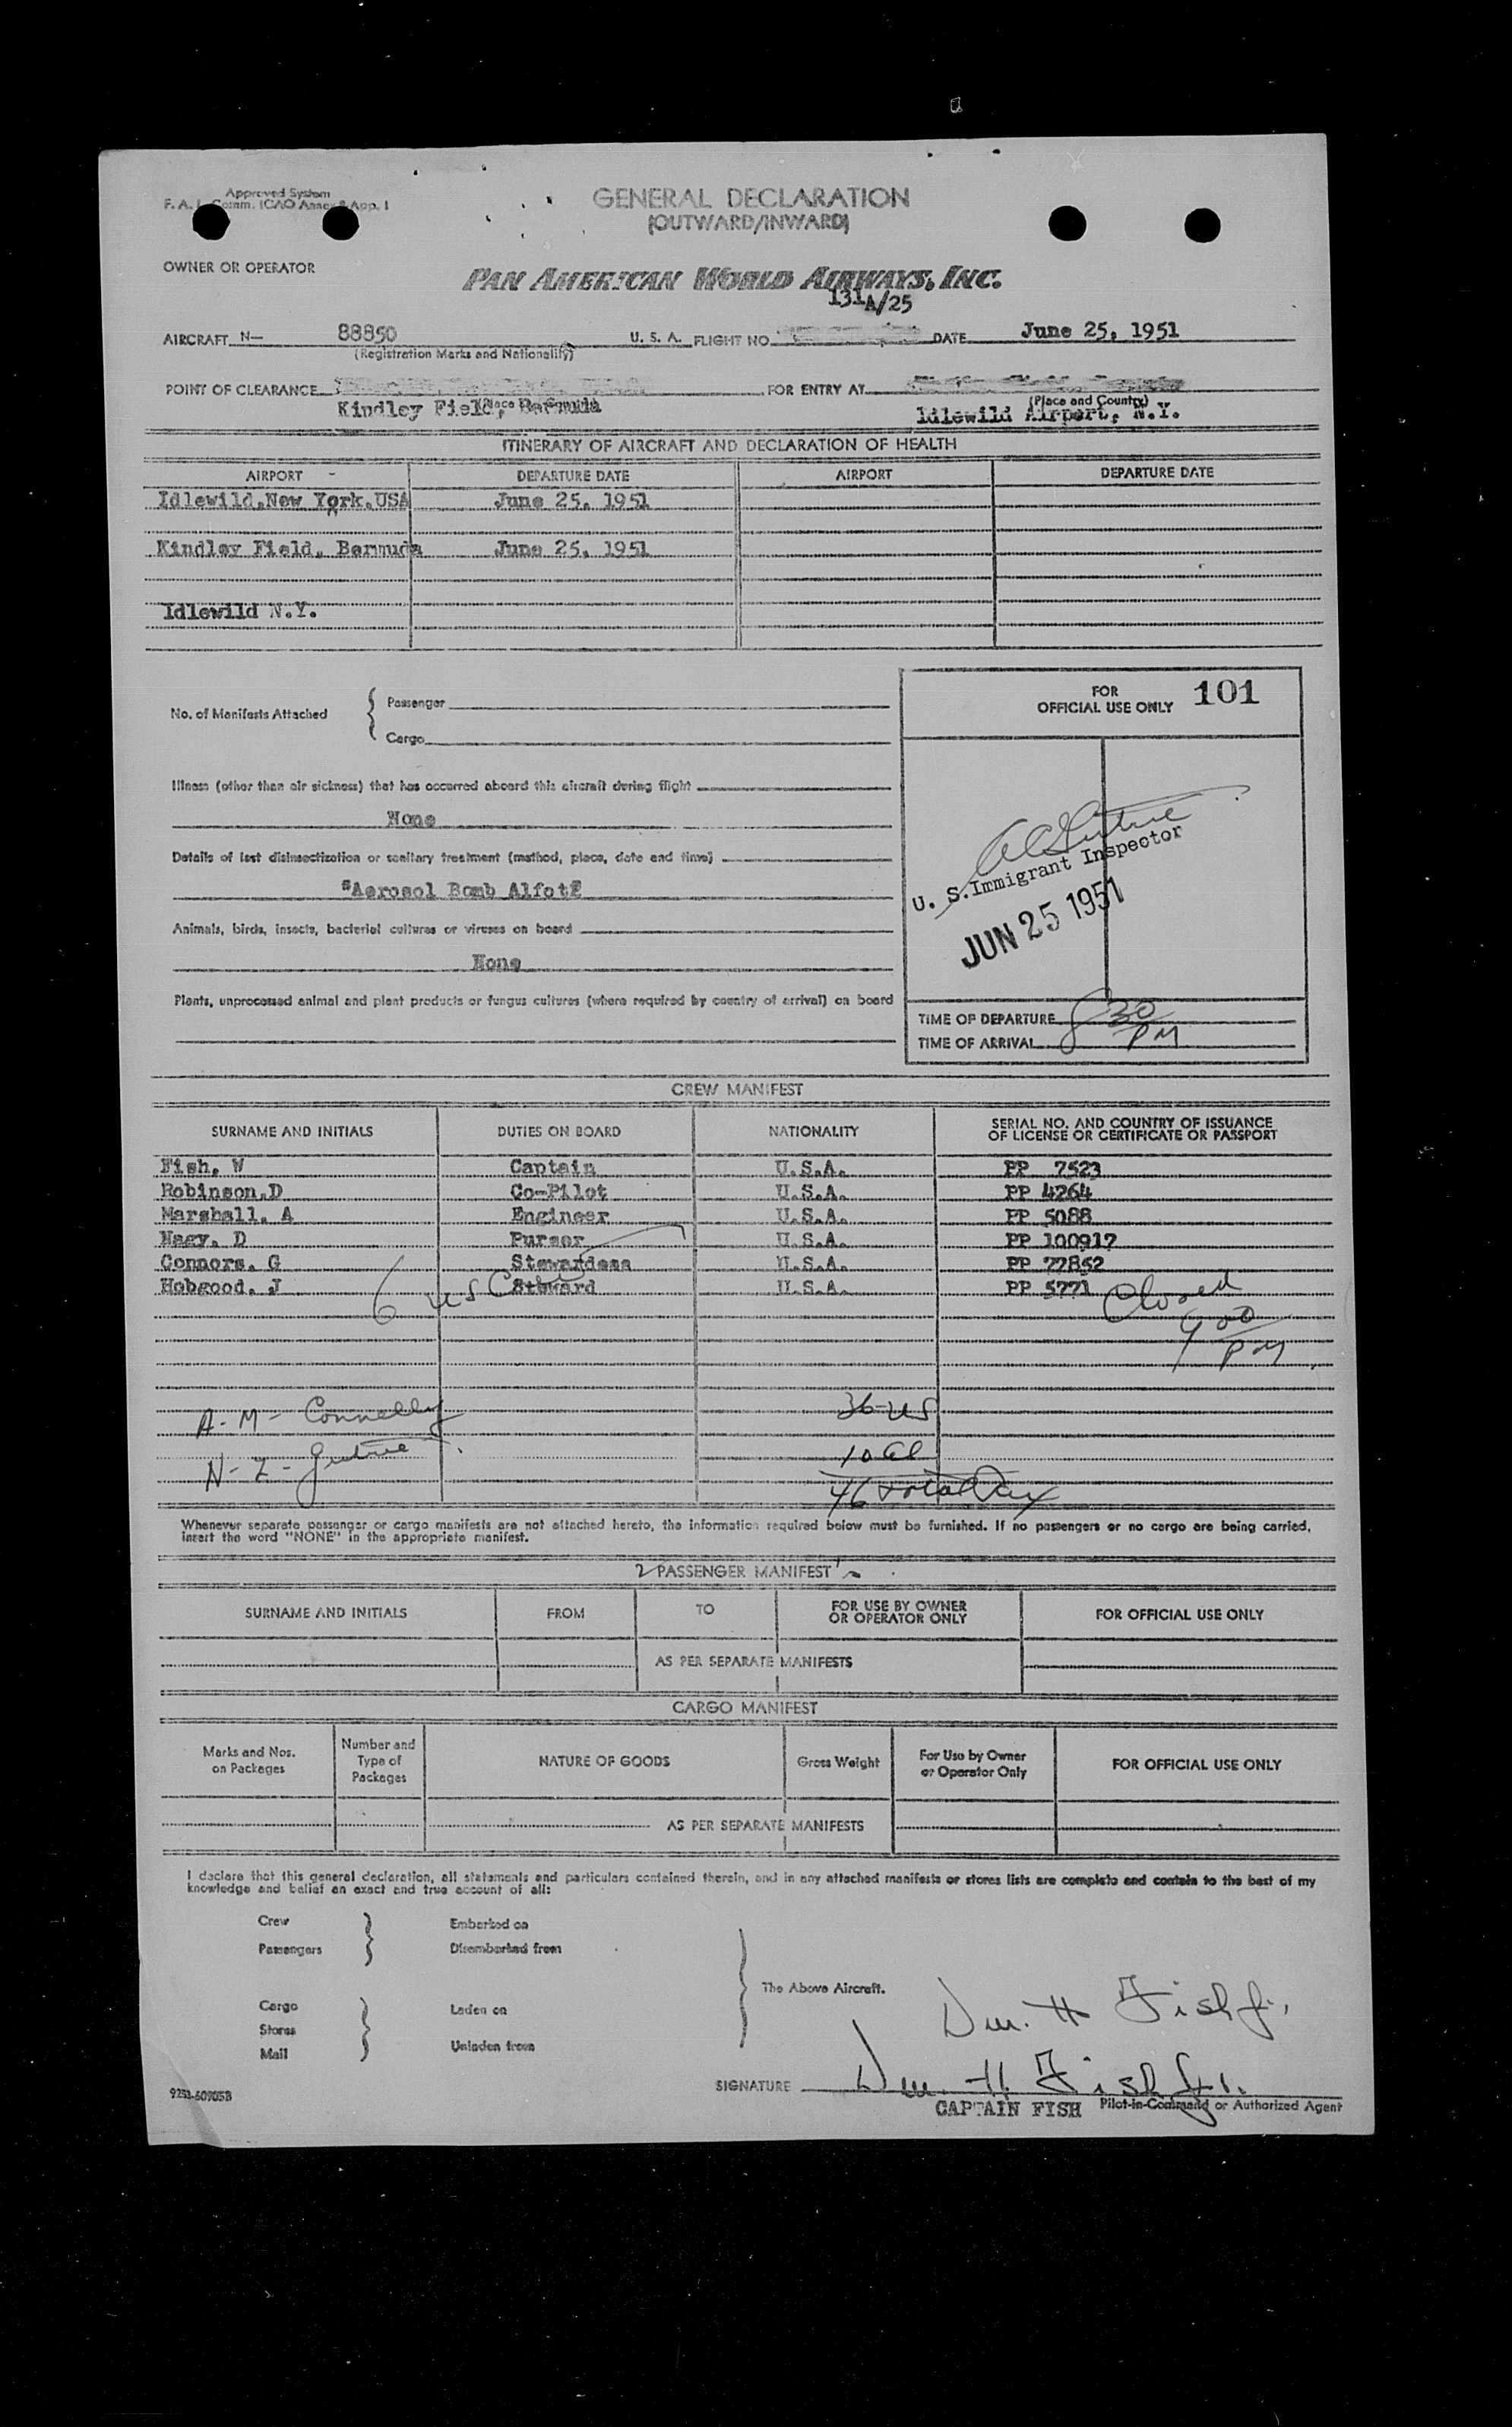 Approved System
F. A. L. Comm. ICAO Annex 9 App. 1
GENERAL DECLARATION
(OUTWARD/INWARD)
OWNER OR OPERATOR
PAN AMERICAN WORLD AIRWAYS, INC.
131A/25
AIRCRAFT N— 88850 U. S. A. FLIGHT NO DATE June 25, 1951
(Registration Marks and Nationality)
POINT OF CLEARANCE FOR ENTRY AT
(Place and Country)
Kindley Field, Bermuda Idlewild Airport, N.Y.
ITINERARY OF AIRCRAFT AND DECLARATION OF HEALTH
AIRPORT DEPARTURE DATE AIRPORT DEPARTURE DATE
Idlewild,New York,USA June 25, 1951
Kindley Field, Bermuda June 25, 1951
Idlewild N.Y.
FOR
OFFICIAL USE ONLY 101
No. of Manifests Attached
Passenger
Cargo
Illness (other than air sickness) that has occurred aboard this aircraft during flight
None
Details of last disinsectization or sanitary treatment (method, place, date and time)
"Aerosol Bomb Alfot"
Animals, birds, insects, bacterial cultures or viruses on board
None
Plants, unprocessed animal and plant products or fungus cultures (where required by country of arrival) on board
U. S. Immigrant Inspector
JUN 25 1951
TIME OF DEPARTURE
TIME OF ARRIVAL 8 30 PM
CREW MANIFEST
SURNAME AND INITIALS DUTIES ON BOARD NATIONALITY SERIAL NO. AND COUNTRY OF ISSUANCE
OF LICENSE OR CERTIFICATE OR PASSPORT
Fish, W Captain U.S.A. PP 7523
Robinson,D Co-Pilot U.S.A. PP 4264
Marshall, A Engineer U.S.A. PP 5088
Nagy, D Purser U.S.A. PP 100917
Connors, G Stewardess U.S.A. PP 77852
Hobgood, J Steward U.S.A. PP 5771
6 US Crew
Closed
9 00
PM
A-M- Connelly 36-US
N-Z- Gutrie 10 Al
46 total Pax
Whenever separate passenger or cargo manifests are not attached hereto, the information required below must be furnished. If no passengers or no cargo are being carried,
insert the word "NONE" in the appropriate manifest.
2 PASSENGER MANIFEST
SURNAME AND INITIALS FROM TO FOR USE BY OWNER
OR OPERATOR ONLY FOR OFFICIAL USE ONLY
AS PER SEPARATE MANIFESTS
CARGO MANIFEST
Marks and Nos.
on Packages
Number and
Type of
Packages
NATURE OF GOODS
Gross Weight
For Use by Owner
or Operator Only
FOR OFFICIAL USE ONLY
AS PER SEPARATE MANIFESTS
I declare that this general declaration, all statements and particulars contained therein, and in any attached manifests or stores lists are complete and contain to the best of my
knowledge and belief an exact and true account of all:
Crew Embarked on
Passengers Disembarked from
The Above Aircraft.
Cargo Laden on
Stores
Mail Unladen from
Wm. H Fish Jr.
SIGNATURE Wm. H. Fish Jr.
CAPTAIN FISH Pilot-in-Command or Authorized Agent
9251-60905B